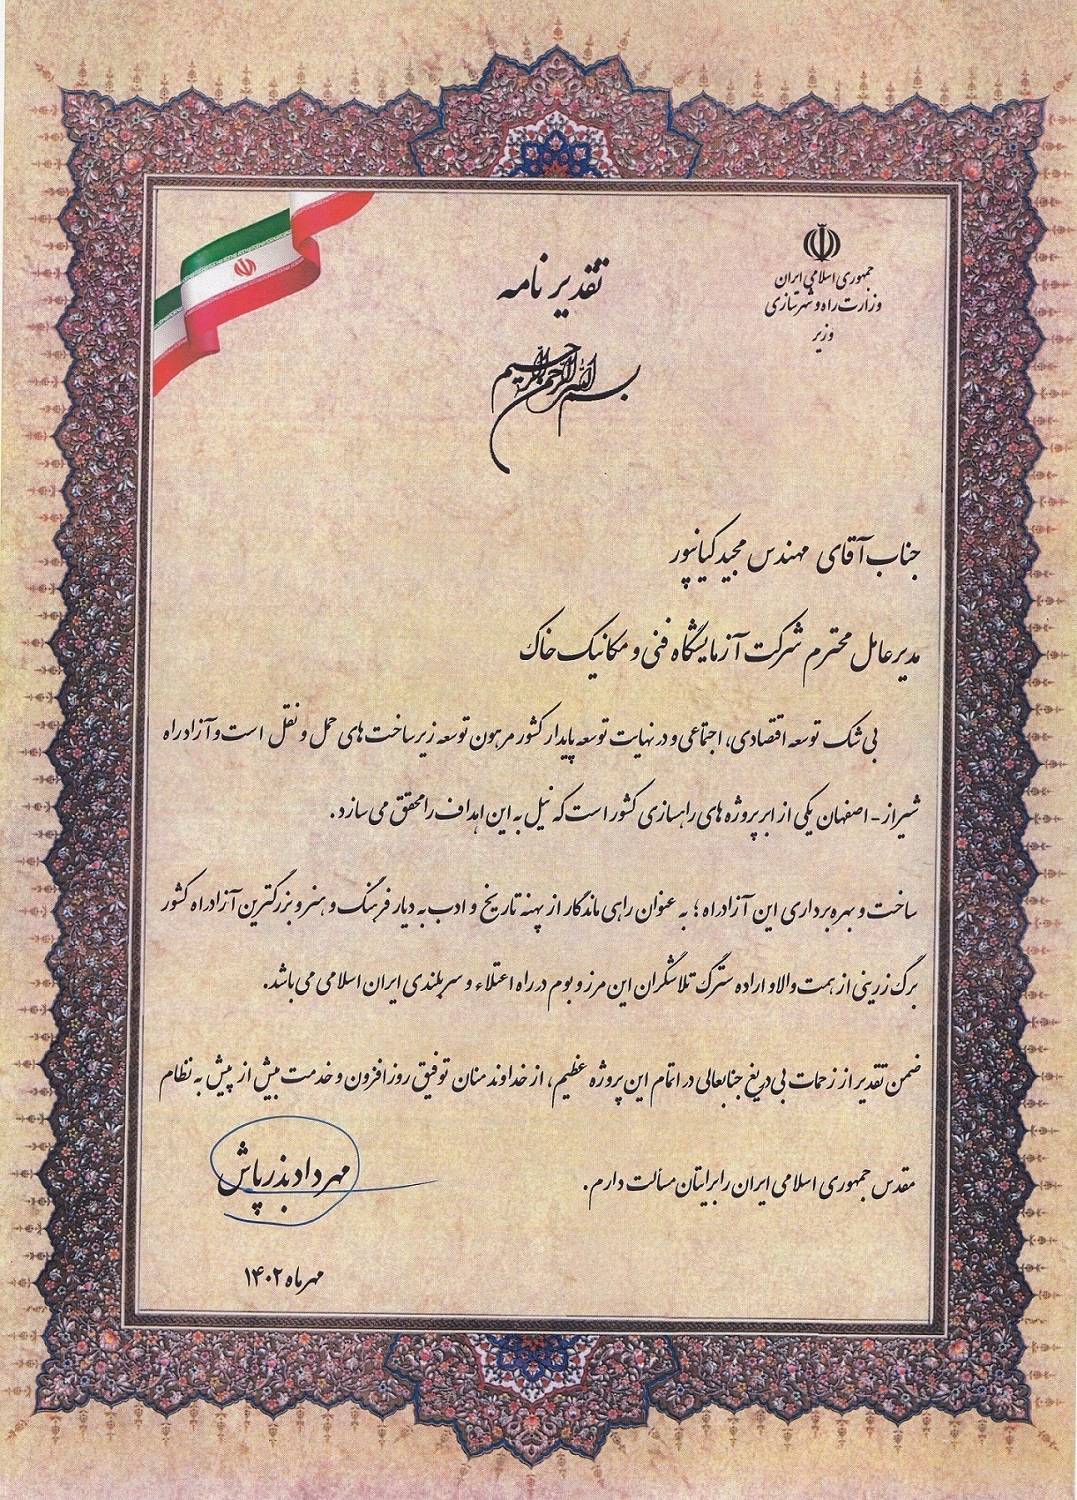 جمهوری اسلامی ایران
وزارت راه و شهرسازی
وزیر
تقدیر نامه
بسم الله الرحمن الرحیم
جناب آقای مهندس مجید کیانپور
مدیرعامل محترم شرکت آزمایشگاه فنی و مکانیک خاک
بی شک توسعه اقتصادی، اجتماعی و در نهایت توسعه پایدار کشور مرهون توسعه زیرساخت های حمل و نقل است و آزادراه
شیراز - اصفهان یکی از ابرپروژه های راهسازی کشور است که نیل به این اهداف را محقق می سازد.
ساخت و بهره برداری این آزادراه ؛ به عنوان راهی ماندگار از پهنه تاریخ و ادب به دیار فرهنگ و هنر و بزرگترین آزادراه کشور
برگ زرینی از همت والا و اراده سترگ تلاشگران این مرز و بوم در راه اعتلاء و سربلندی ایران اسلامی می باشد.
ضمن تقدیر از زحمات بی دریغ جنابعالی در اتمام این پروژه عظیم، از خداوند منان توفیق روزافزون و خدمت بیش از پیش به نظام
مقدس جمهوری اسلامی ایران را برایتان مسألت دارم.
مهرداد بذرپاش
مهرماه ۱۴۰۲